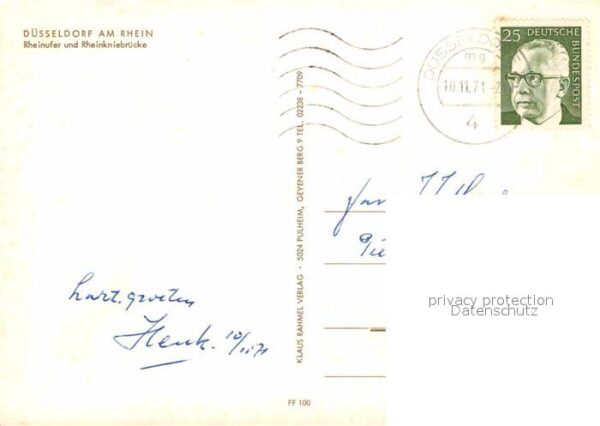 DÜSSELDORF AM RHEIN
Rheinufer und Rheinkniebrücke
25 DEUTSCHE BUNDESPOST
DÜSSELDO
mg
10.11.71
4
KLAUS RAHMEL VERLAG - 5024 PULHEIM, GEYENER BERG 9 TEL. 02238 - 7709
hart. groeten
Henk. 10/11 71
privacy protection
Datenschutz
FF 100